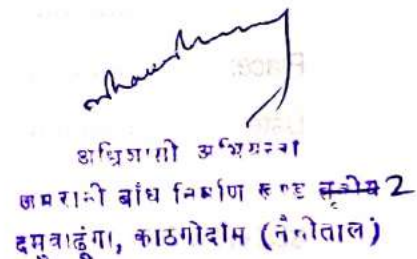 अधिशासी अभियन्ता
जमरानी बांध निर्माण खण्ड 2
दमुवाढूंगा, काठगोदाम (नैनीताल)